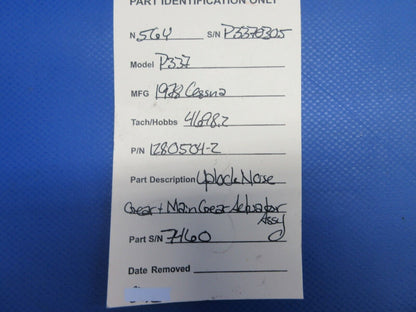 PART IDENTIFICATION ONLY
N 564 S/N P3370305
Model P337
MFG 1978 Cessna
Tach/Hobbs 4698.2
P/N 1280504-2
Part Description Uplock Nose
Gear + Main Gear Actuator
Assy
Part S/N 7460
Date Removed